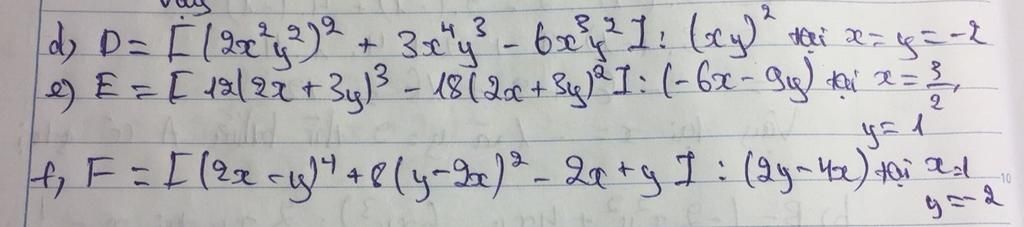 vậy
d) D = [(2x²y²)² + 3x⁴y³ - 6x³y² ] : (xy)² tại x = y = -2
e) E = [ 12(2x + 3y)³ - 18(2x + 3y)² ] : (-6x - 9y) tại x = 3/2,
y = 1
f, F = [(2x - y)⁴ + 8(y - 2x)² - 2x + y ] : (2y - 4x) tại x = 1
y = -2
10